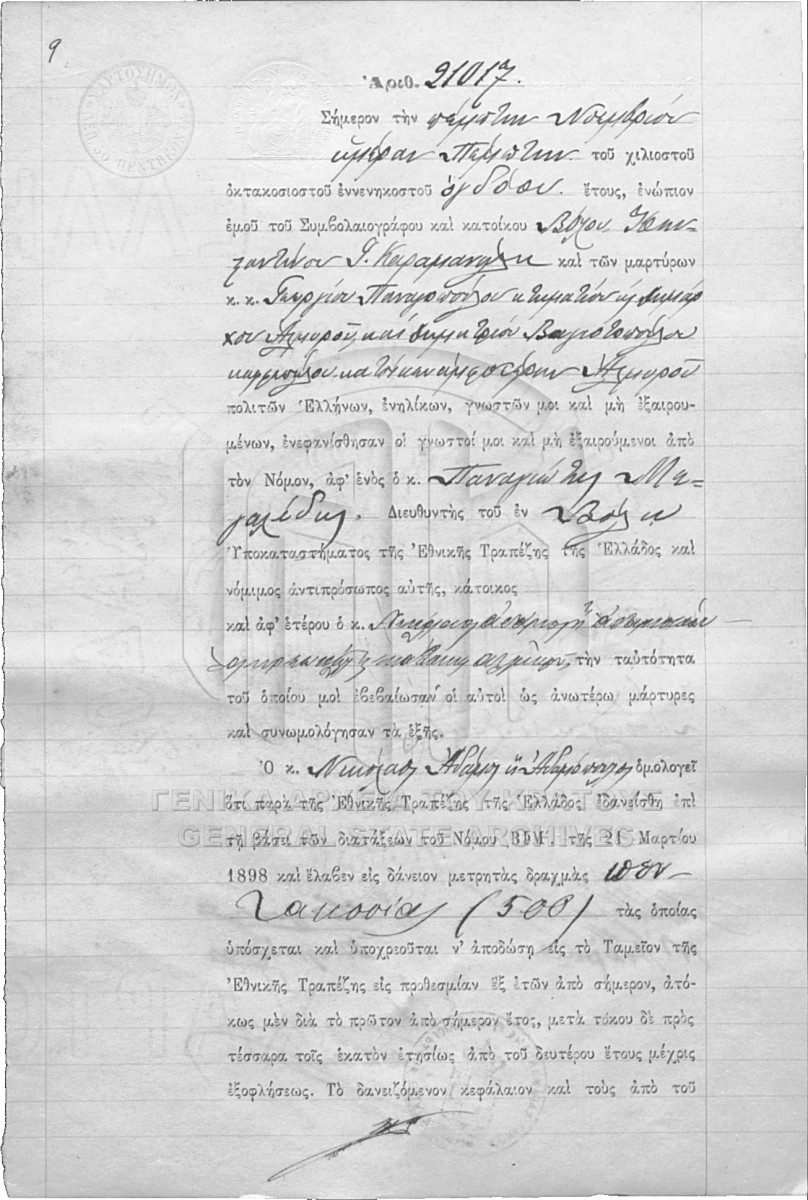 9
Ἀριθ. 21017.
Σήμερον τὴν πέμπτην Νοεμβρίου
ἡμέραν Πέμπτην τοῦ χιλιοστοῦ
ὀκτακοσιοστοῦ ἐννενηκοστοῦ ὀγδόου ἔτους, ἐνώπιον
ἐμοῦ τοῦ Συμβολαιογράφου καὶ κατοίκου Βόλου Κων-
σταντίνου καὶ τῶν μαρτύρων
κ. κ. Γεωργίου Παναγοπούλου κτηματίου
Ἁλμυροῦ, καὶ Δημητρίου
Ἁλμυροῦ
πολιτῶν Ἑλλήνων, ἐνηλίκων, γνωστῶν μοι καὶ μὴ ἐξαιρου-
μένων, ἐνεφανίσθησαν οἱ γνωστοί μοι καὶ μὴ ἐξαιρούμενοι ἀπὸ
τὸν Νόμον, ἀφ' ἑνὸς ὁ κ. Παναγιώτης Με-
γαλίδης. Διευθυντὴς τοῦ ἐν Βόλῳ
Ὑποκαταστήματος τῆς Ἐθνικῆς Τραπέζης τῆς Ἑλλάδος καὶ
νόμιμος ἀντιπρόσωπος αὐτῆς, κάτοικος
καὶ ἀφ' ἑτέρου ὁ κ. Νικόλαος
τὴν ταὐτότητα
τοῦ ὁποίου μοὶ ἐβεβαίωσαν οἱ αὐτοὶ ὡς ἀνωτέρω μάρτυρες
καὶ συνωμολόγησαν τὰ ἑξῆς.
Ὁ κ. Νικόλαος Ἀδάμου ἢ Ἀδαμόπουλος ὁμολογεῖ
ὅτι παρὰ τῆς Ἐθνικῆς Τραπέζης τῆς Ἑλλάδος ἐδανείσθη ἐπὶ
ΓΕΝΙΚΑ ΑΡΧΕΙΑ ΤΟΥ ΚΡΑΤΟΥΣ
GENERAL STATE ARCHIVES
τῇ βάσει τῶν διατάξεων τοῦ Νόμου ΒΦΜ΄. τῆς 21 Μαρτίου
1898 καὶ ἔλαβεν εἰς δάνειον μετρητὰς δραχμὰς πεν-
τακοσίας (500) τὰς ὁποίας
ὑπόσχεται καὶ ὑποχρεοῦται ν' ἀποδώσῃ εἰς τὸ Ταμεῖον τῆς
Ἐθνικῆς Τραπέζης εἰς προθεσμίαν ἓξ ἐτῶν ἀπὸ σήμερον, ἀτό-
κως μὲν διὰ τὸ πρῶτον ἀπὸ σήμερον ἔτος, μετὰ τόκου δὲ πρὸς
τέσσαρα τοῖς ἑκατὸν ἐτησίως ἀπὸ τοῦ δευτέρου ἔτους μέχρις
ἐξοφλήσεως. Τὸ δανειζόμενον κεφάλαιον καὶ τοὺς ἀπὸ τοῦ